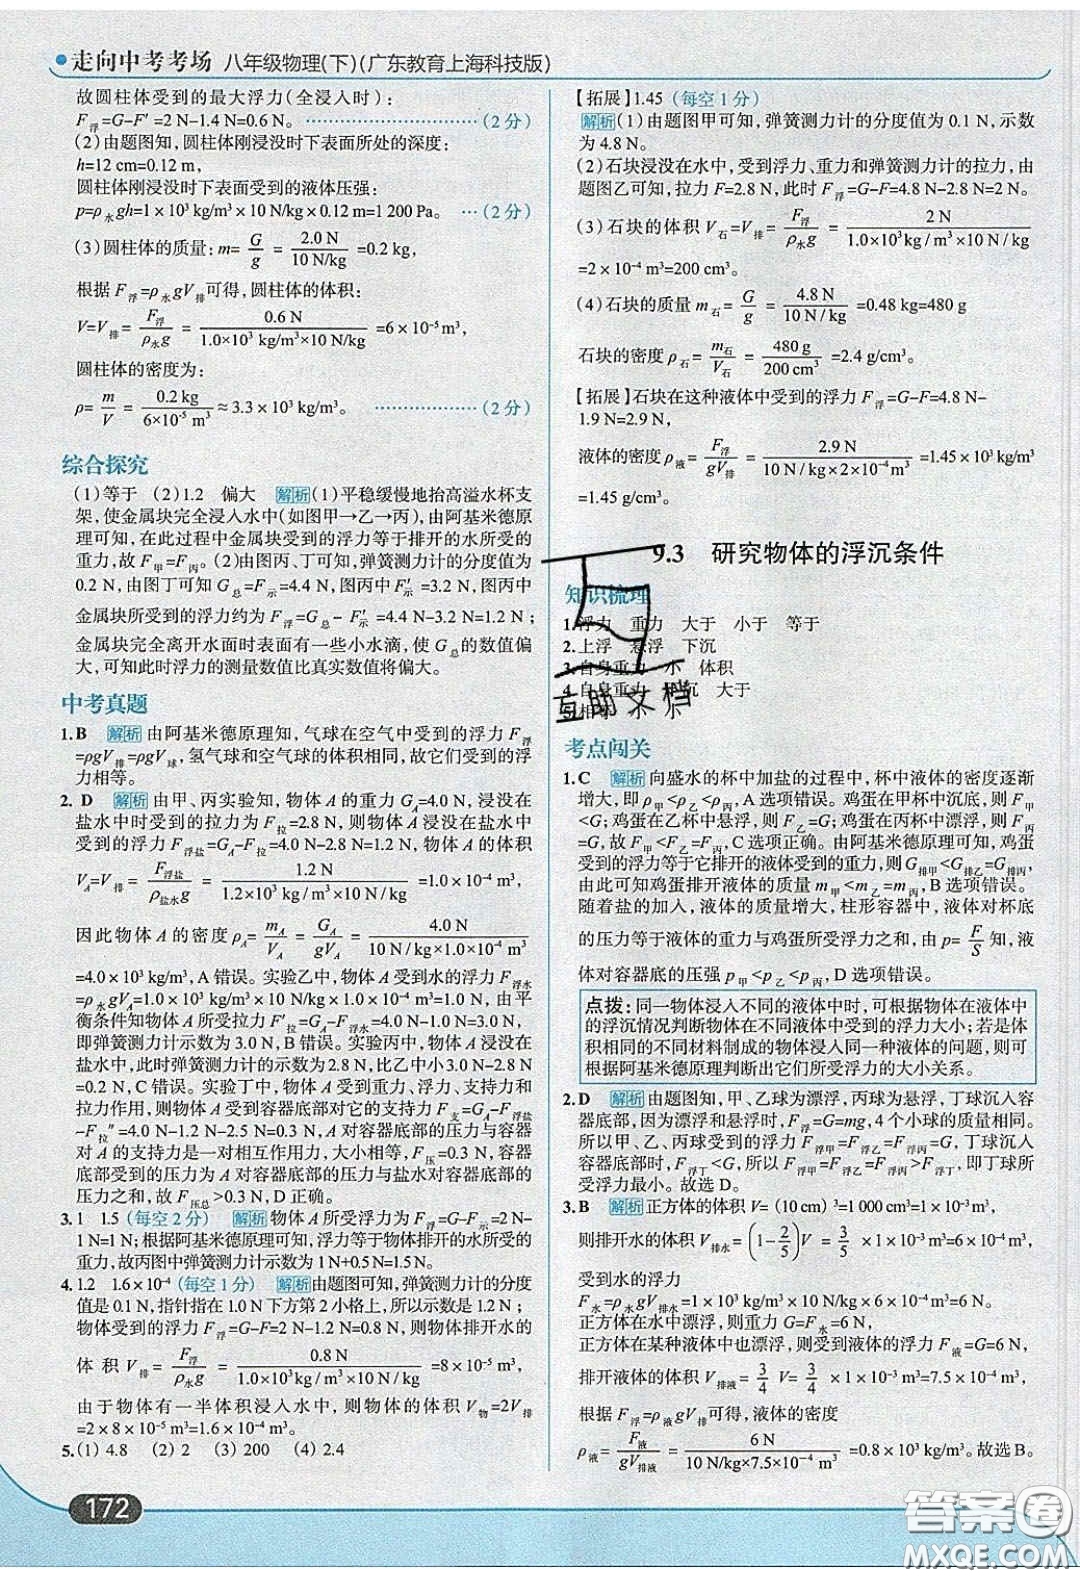 走向中考考场 八年级物理(下)(广东教育上海科技版)
故圆柱体受到的最大浮力(全浸入时):
F浮=G-F′=2 N-1.4 N=0.6 N。 ……………………(2 分)
(2)由题图知,圆柱体刚浸没时下表面所处的深度:
h=12 cm=0.12 m,
圆柱体刚浸没时下表面受到的液体压强:
p=ρ水gh=1×10³ kg/m³×10 N/kg×0.12 m=1 200 Pa。 …(2 分)
(3)圆柱体的质量:m=G/g=2.0 N/10 N/kg=0.2 kg,
根据F浮=ρ水gV排可得,圆柱体的体积:
V=V排=F浮/ρ水g=0.6 N/1.0×10³ kg/m³×10 N/kg=6×10⁻⁵ m³,
圆柱体的密度为:
ρ=m/V=0.2 kg/6×10⁻⁵ m³≈3.3×10³ kg/m³。 ……………(2 分)
综合探究
(1)等于 (2)1.2 偏大 解析(1)平稳缓慢地抬高溢水杯支
架,使金属块完全浸入水中(如图甲→乙→丙),由阿基米德原
理可知,在此过程中金属块受到的浮力等于排开的水所受的
重力,故F甲=F丙。(2)由图丙、丁可知,弹簧测力计的分度值为
0.2 N,由图丁可知G总=F示=4.4 N,图丙中F′示=3.2 N,图丙中
金属块所受到的浮力约为F浮=G总-F′示=4.4 N-3.2 N=1.2 N;
金属块完全离开水面时表面有一些小水滴,使G总的数值偏
大,可知此时浮力的测量数值比真实数值将偏大。
中考真题
1.B 解析 由阿基米德原理知,气球在空气中受到的浮力F浮
=ρgV排=ρgV球,氢气球和空气球的体积相同,故它们受到的浮
力相等。
2. D 解析 由甲、丙实验知,物体A的重力GA=4.0 N,浸没在
盐水中时受到的拉力为F拉=2.8 N,则物体A浸没在盐水中
受到的浮力F浮盐=GA-F拉=4.0 N-2.8 N=1.2 N,物体A的体积
VA=V排=F浮盐/ρ盐水g=1.2 N/1.2×10³ kg/m³×10 N/kg=1.0×10⁻⁴ m³,
因此物体A的密度ρA=mA/VA=GA/gVA=4.0 N/10 N/kg×1.0×10⁻⁴ m³
=4.0×10³ kg/m³,A错误。实验乙中,物体A受到水的浮力F浮水
=ρ水gVA=1.0×10³ kg/m³×10 N/kg×1.0×10⁻⁴ m³=1.0 N,由平
衡条件知物体A所受拉力F′拉=GA-F浮水=4.0 N-1.0 N=3.0 N,
即弹簧测力计示数为3.0 N,B错误。实验丙中,物体A浸没在
盐水中,此时弹簧测力计的示数为2.8 N,比乙中小3.0 N-2.8 N
=0.2 N,C错误。实验丁中,物体A受重力、浮力、支持力和
拉力作用,则物体受到容器底部对它的支持力F支=GA-F浮盐
-F拉″=4.0 N-1.2 N-2.5 N=0.3 N,A对容器底部的压力与容器
对A的支持力是一对相互作用力,大小相等,F压=0.3 N,容器
底部受到的压力为A对容器底部的压力与盐水对容器底部的
压力之和,故F压总>0.3 N,D正确。
3.1 1.5(每空2分) 解析 物体A所受浮力为F浮=G-F示=2 N-
1 N=1 N;根据阿基米德原理可知,浮力等于物体排开的水所受的
重力,故丙图中弹簧测力计示数为1 N+0.5 N=1.5 N。
4.1.2 1.6×10⁻⁴(每空1分) 解析 由题图可知,弹簧测力计的分度
值是0.1 N,指针指在1.0 N下方第2小格上,所以示数是1.2 N;
物体受到的浮力F浮=G-F=2 N-1.2 N=0.8 N,则物体排开水的
体积V排=F浮/ρ水g=0.8 N/1.0×10³ kg/m³×10 N/kg=8×10⁻⁵ m³,
由于物体有一半体积浸入水中,则物体的体积V物=2V排
=2×8×10⁻⁵ m³=1.6×10⁻⁴ m³。
5.(1)4.8 (2)2 (3)200 (4)2.4
【拓展】1.45(每空1分)
解析(1)由题图甲可知,弹簧测力计的分度值为0.1 N,示数
为4.8 N。
(2)石块浸没在水中,受到浮力、重力和弹簧测力计的拉力,由
题图乙可知,拉力F=2.8 N,此时F浮=G-F=4.8 N-2.8 N=2 N。
(3)石块的体积V石=V排=F浮/ρ水g=2 N/1.0×10³ kg/m³×10 N/kg
=2×10⁻⁴ m³=200 cm³。
(4)石块的质量m石=G/g=4.8 N/10 N/kg=0.48 kg=480 g
石块的密度ρ石=m石/V石=480 g/200 cm³=2.4 g/cm³。
【拓展】石块在这种液体中受到的浮力F浮=G-F=4.8 N-
1.9 N=2.9 N,
液体的密度ρ液=F浮/gV排=2.9 N/10 N/kg×2×10⁻⁴ m³=1.45×10³ kg/m³
=1.45 g/cm³。
9.3 研究物体的浮沉条件
知识梳理
1.浮力 重力 大于 小于 等于
2.上浮 悬浮 下沉
3.自身重力 小 体积
4.自身重力 沉 大于
5.相等 小 小
互助文档
考点闯关
1.C 解析 向盛水的杯中加盐的过程中,杯中液体的密度逐渐
增大,即ρ甲<ρ乙<ρ丙,A选项错误。鸡蛋在甲杯中沉底,则F甲
<G;鸡蛋在乙杯中悬浮,则F乙=G;鸡蛋在丙杯中漂浮,则F丙
=G,故F甲<F乙=F丙,C选项正确。由阿基米德原理可知,鸡蛋
受到的浮力等于它排开的液体受到的重力,则G排甲<G排乙=G排丙,
由此可知鸡蛋排开液体的质量m甲<m乙=m丙,B选项错误。
随着盐的加入,液体的质量增大,柱形容器中,液体对杯底
的压力等于液体的重力与鸡蛋所受浮力之和,由p=F/S知,液
体对容器底的压强p甲<p乙<p丙,D选项错误。
点拨:同一物体浸入不同的液体中时,可根据物体在液体中
的浮沉情况判断物体在不同液体中受到的浮力大小;若是体
积相同的不同材料制成的物体浸入同一种液体的问题,则可
根据阿基米德原理判断出它们所受浮力的大小关系。
2.D 解析 由题图知,甲、乙球为漂浮,丙球为悬浮,丁球沉入容
器底部,因为漂浮和悬浮时,F浮=G=mg,4个小球的质量相同。
所以甲、乙、丙球受到的浮力F浮甲=F浮乙=F浮丙=G,丁球沉入
容器底部,F浮丁<G,所以F浮甲=F浮乙=F浮丙>F浮丁,即丁球所
受浮力最小。故选D。
3.B 解析 正方体的体积V=(10 cm)³=1 000 cm³=1×10⁻³ m³,
则排开水的体积V排水=(1-2/5)V=3/5×1×10⁻³ m³=6×10⁻⁴ m³,
受到水的浮力
F水=ρ水gV排水=1×10³ kg/m³×10 N/kg×6×10⁻⁴ m³=6 N。
正方体在水中漂浮,则重力G=F水=6 N,
正方体在某种液体中也漂浮,则受到液体的浮力F液=G=6 N,
排开液体的体积V排液=3/4 V=3/4×1×10⁻³ m³=7.5×10⁻⁴ m³,
根据F浮=ρ液gV排可得,液体的密度
ρ液=F液/gV排液=6 N/10 N/kg×7.5×10⁻⁴ m³=0.8×10³ kg/m³。故选B。
172
答案圈
MXQE.COM